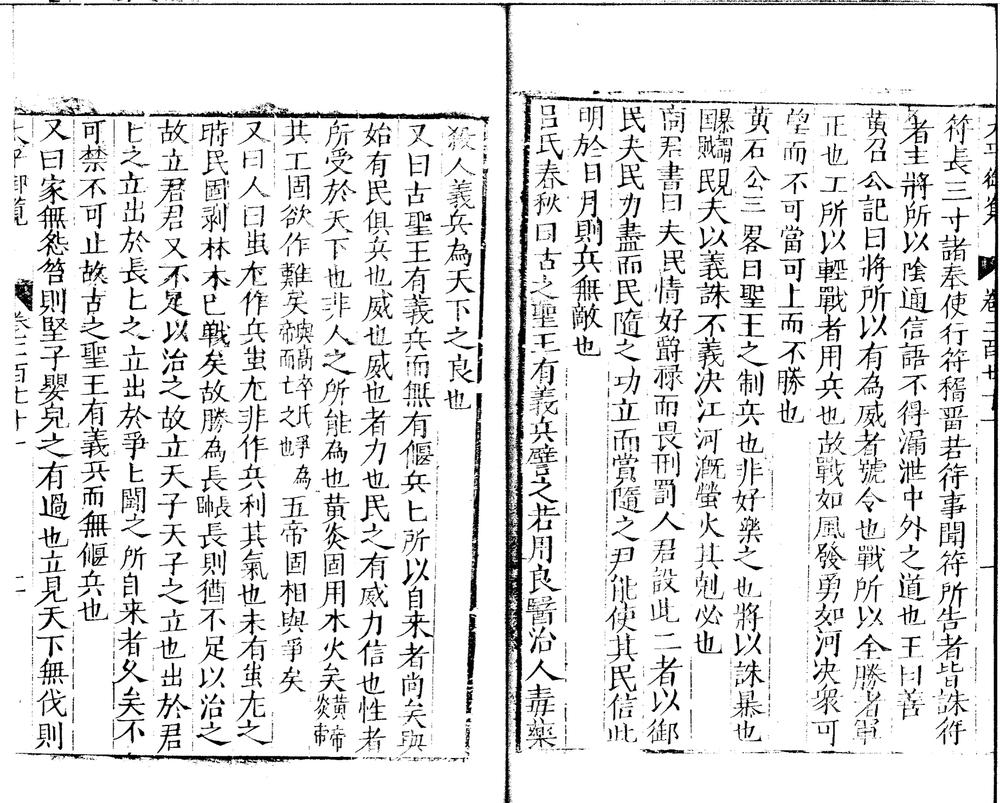 符長三寸諸奉使行符稽畱若符事聞符所告者皆誅符
者主將所以陰通信語不得漏泄中外之道也王曰善
黄召公記曰將所以有為威者號令也戰所以全勝者軍
正也士所以輕戰者用兵也故戰如風發勇如河决衆可
望而不可當可上而不勝也
黄石公三畧曰聖王之制兵也非好樂之也將以誅暴也
夫以義誅不義决江河溉螢火其剋必也
商君書曰夫民情好爵禄而畏刑罰人君設此二者以御
民夫民力盡而民隨之功立而賞隨之尹能使其民信此
明於日月則兵無敵也
吕氏春秋曰古之聖王有義兵譬之若用良醫治人毒藥
殺人義兵為天下之良也
又曰古聖王有義兵而無有偃兵匕所以自来者尚矣與
始有民俱兵也威也威也者力也民之有威力信也性者
所受於天下也非人之所能為也黄炎固用水火矣黄帝炎帝
共工固欲作難矣與高辛氏爭為帝而亡之也五帝固相與爭矣
又曰人曰蚩尤作兵蚩尤非作兵利其氣也未有蚩尤之
時民固剥林木已戰矣故勝為長長帥長則猶不足以治之
故立君君又不足以治之故立天子天子之立也出於君
匕之立出於長匕之立出於爭匕鬭之所自来者久矣不
可禁不可止故古之聖王有義兵而無偃兵也
又曰家無怨笞則堅子嬰兒之有過也立見天下無伐則
太平御覧 卷二百七十一 二